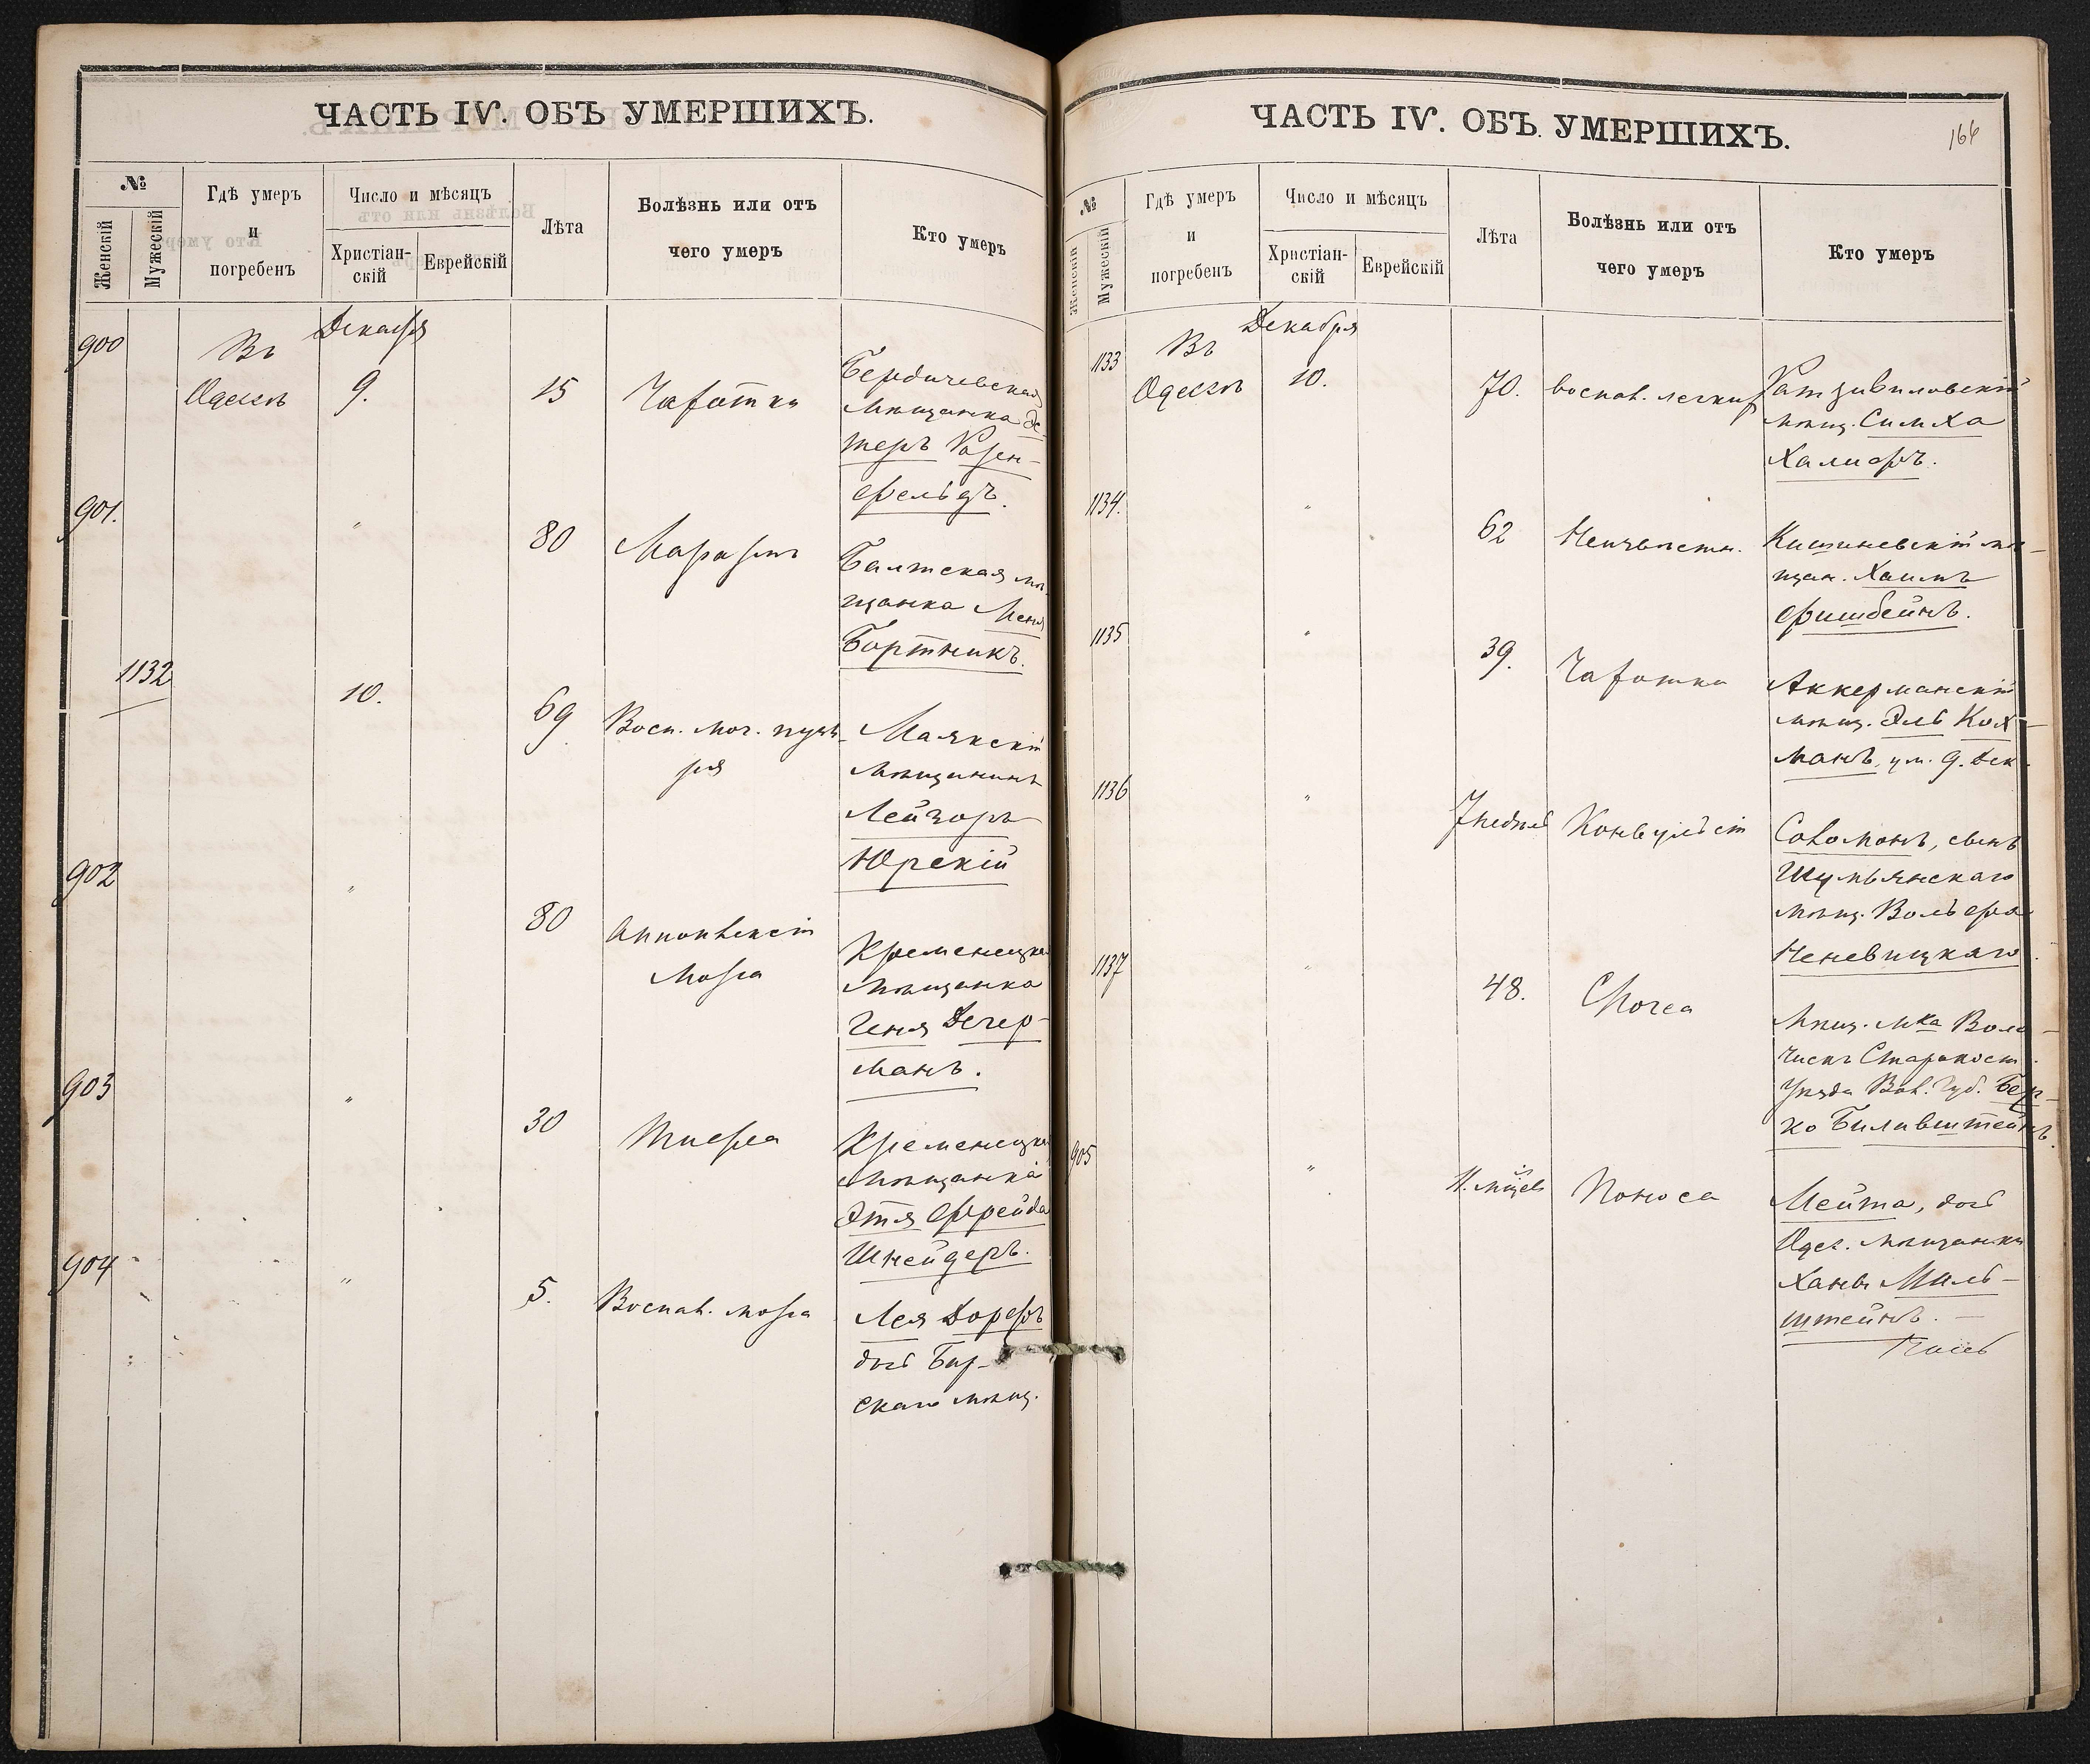 ЧАСТЬ IV. ОБЪ УМЕРШИХЪ.
№
Женскій
Мужескій
Гдѣ умеръ
и
погребенъ
Число и мѣсяцъ
Христіан-
скій
Еврейскій
Лѣта
Болѣзнь или отъ
чего умеръ
Кто умеръ
Декабря
900
Въ
Одессѣ
9.
15
Чахотки
Бердичевская
мѣщанка Э-
теръ Розен-
фельдъ.
901.
"
80
Маразмъ
Балтская мѣ-
щанка
Бортникъ.
1132
10.
69
Восп. моч. пузы-
ря
Маякскій
мѣщанинъ
Лейзоръ
Юрскій
902
"
80
Апоплексіи
мозга
Кременецкая
мѣщанка
Геня Дехер-
манъ.
903
"
30
Тифса
Кременецкая
мѣщанка
Этя Фрейда
Шнейдеръ.
904
"
5.
Воспал. мозга
Лея Дорфъ
дочь Бир-
скаго мѣщ.
ЧАСТЬ IV. ОБЪ УМЕРШИХЪ.
166
№
Женскій
Мужескій
Гдѣ умеръ
и
погребенъ
Число и мѣсяцъ
Христіан-
скій
Еврейскій
Лѣта
Болѣзнь или отъ
чего умеръ
Кто умеръ
Декабря
1133
Въ
Одессѣ
10.
70.
воспал. легких
Ратзивиловскій
мѣщ. Симха
Халифъ.
1134.
"
62
Неизвѣстн.
Кишиневскій мѣ-
щан. Хаимъ
Фишбейнъ.
1135
"
39.
Чахотки
Аккерманскій
мѣщ. Эль Кох-
манъ, ум. 9. Дек.
1136
"
7 недѣль
Конвульсіи
Соломонъ, сынъ
Шумьянскаго
мѣщ. Вольфа
Неневицкаго.
1137
"
48.
Мѣщ. м-ка Воло-
чискъ Старокост.
Уѣзда Вол. Губ. Бер-
ко Биливштейнъ.
905
"
11. мѣцев
Поноса
Мейта, дочь
Одес. мѣщанки
Ханы Миль-
штейнъ. —